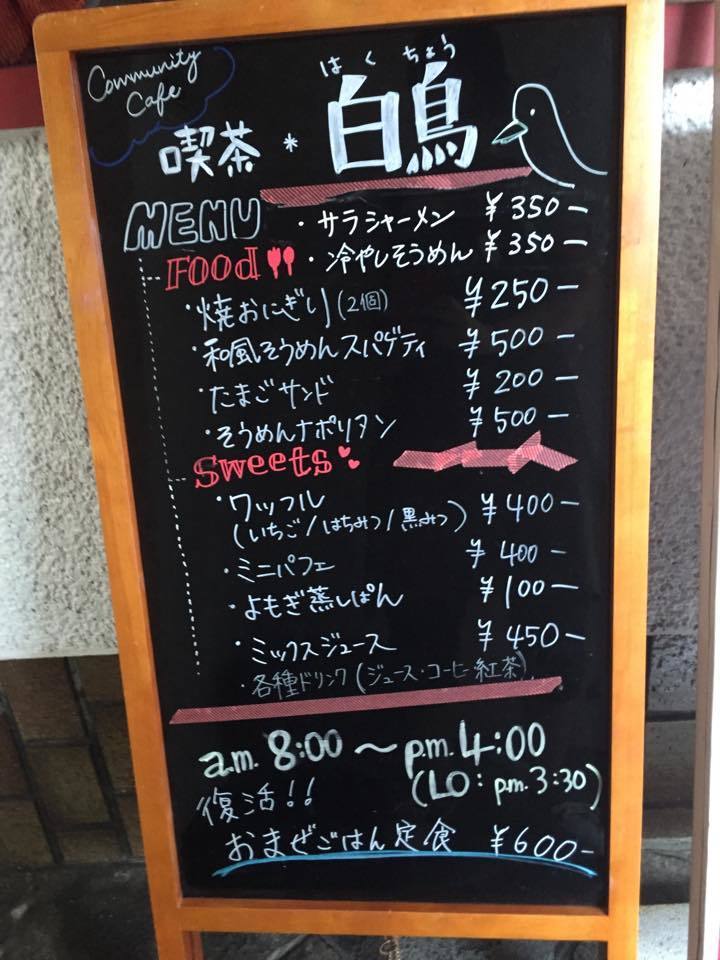 Community
Cafe
はくちょう
喫茶*白鳥
MENU
・サラシャーメン ¥350-
Food ・冷やしそうめん ¥350-
・焼おにぎり(2個) ¥250-
・和風そうめんスパゲティ ¥500-
・たまごサンド ¥200-
・そうめんナポリタン ¥500-
Sweets
・ワッフル ¥400-
(いちご/はちみつ/黒みつ)
・ミニパフェ ¥400-
・よもぎ蒸しぱん ¥100-
・ミックスジュース ¥450-
・各種ドリンク(ジュース・コーヒー紅茶)
a.m. 8:00～p.m. 4:00
(LO: p.m. 3:30)
復活!!
おまぜごはん定食 ¥600-